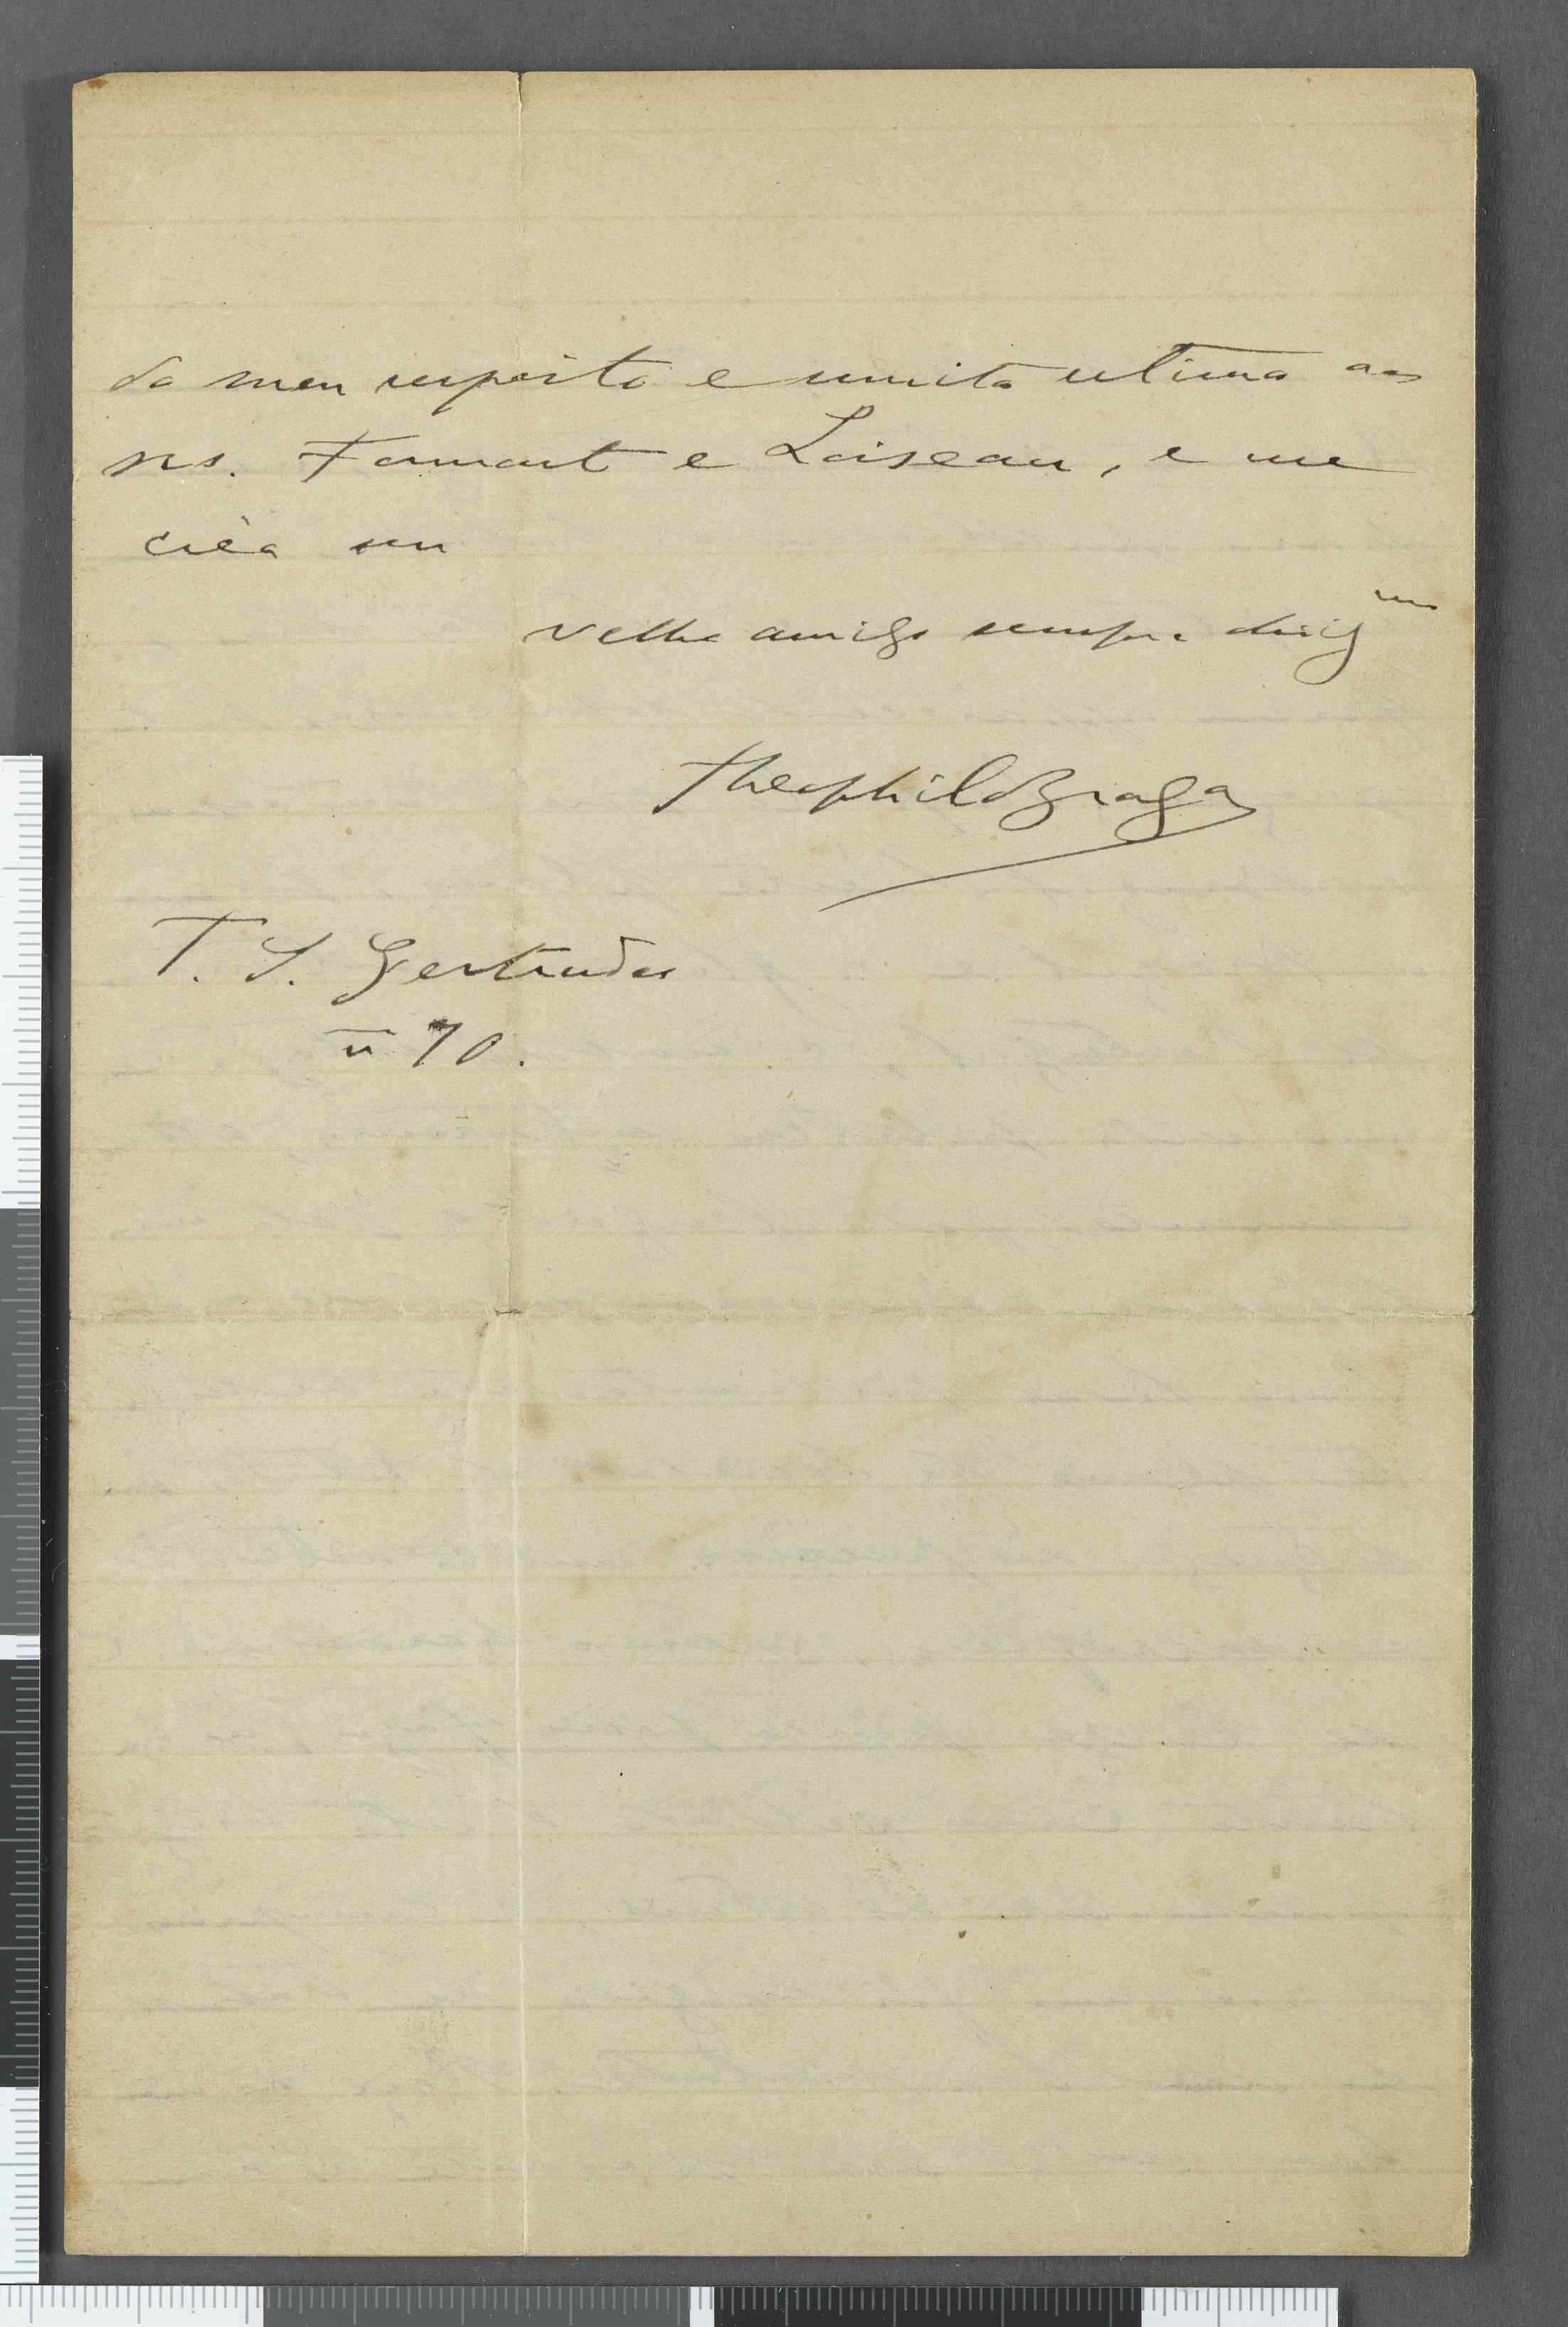 do meu respeito e muita estima aos
srs. Formont e Loiseau, e me
creia seu
velho amigo sempre obrig.mo
Theophilo Braga
T. S. Gertrudes
nº 70.